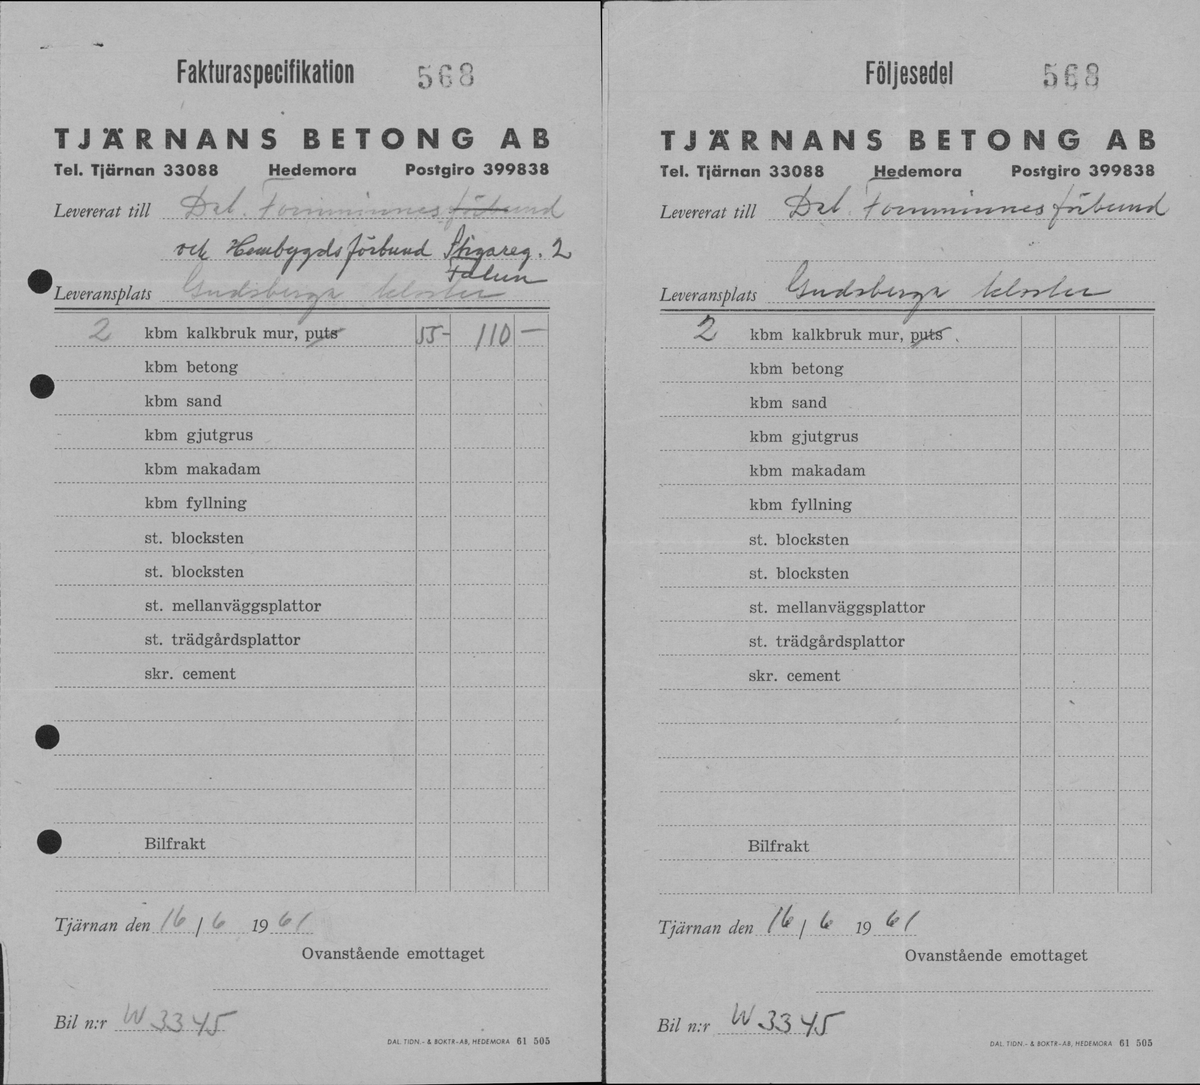 Fakturaspecifikation 568
TJÄRNANS BETONG AB
Tel. Tjärnan 33088 Hedemora Postgiro 399838
Levererat till Dal. Fornminnesförbund
och Hembygdsförbund Stigareg. 2
Falun
Leveransplats Gudsberga kloster
2 kbm kalkbruk mur, puts 55- 110 -
kbm betong
kbm sand
kbm gjutgrus
kbm makadam
kbm fyllning
st. blocksten
st. blocksten
st. mellanväggsplattor
st. trädgårdsplattor
skr. cement
Bilfrakt
Tjärnan den 16 / 6 1961
Ovanstående emottaget
Bil n:r W 3345
DAL. TIDN.- & BOKTR-AB, HEDEMORA 61 505
Följesedel 568
TJÄRNANS BETONG AB
Tel. Tjärnan 33088 Hedemora Postgiro 399838
Levererat till Dal. Fornminnesförbund
Leveransplats Gudsberga kloster
2 kbm kalkbruk mur, puts
kbm betong
kbm sand
kbm gjutgrus
kbm makadam
kbm fyllning
st. blocksten
st. blocksten
st. mellanväggsplattor
st. trädgårdsplattor
skr. cement
Bilfrakt
Tjärnan den 16 / 6 1961
Ovanstående emottaget
Bil n:r W 3345
DAL. TIDN.- & BOKTR-AB, HEDEMORA 61 505